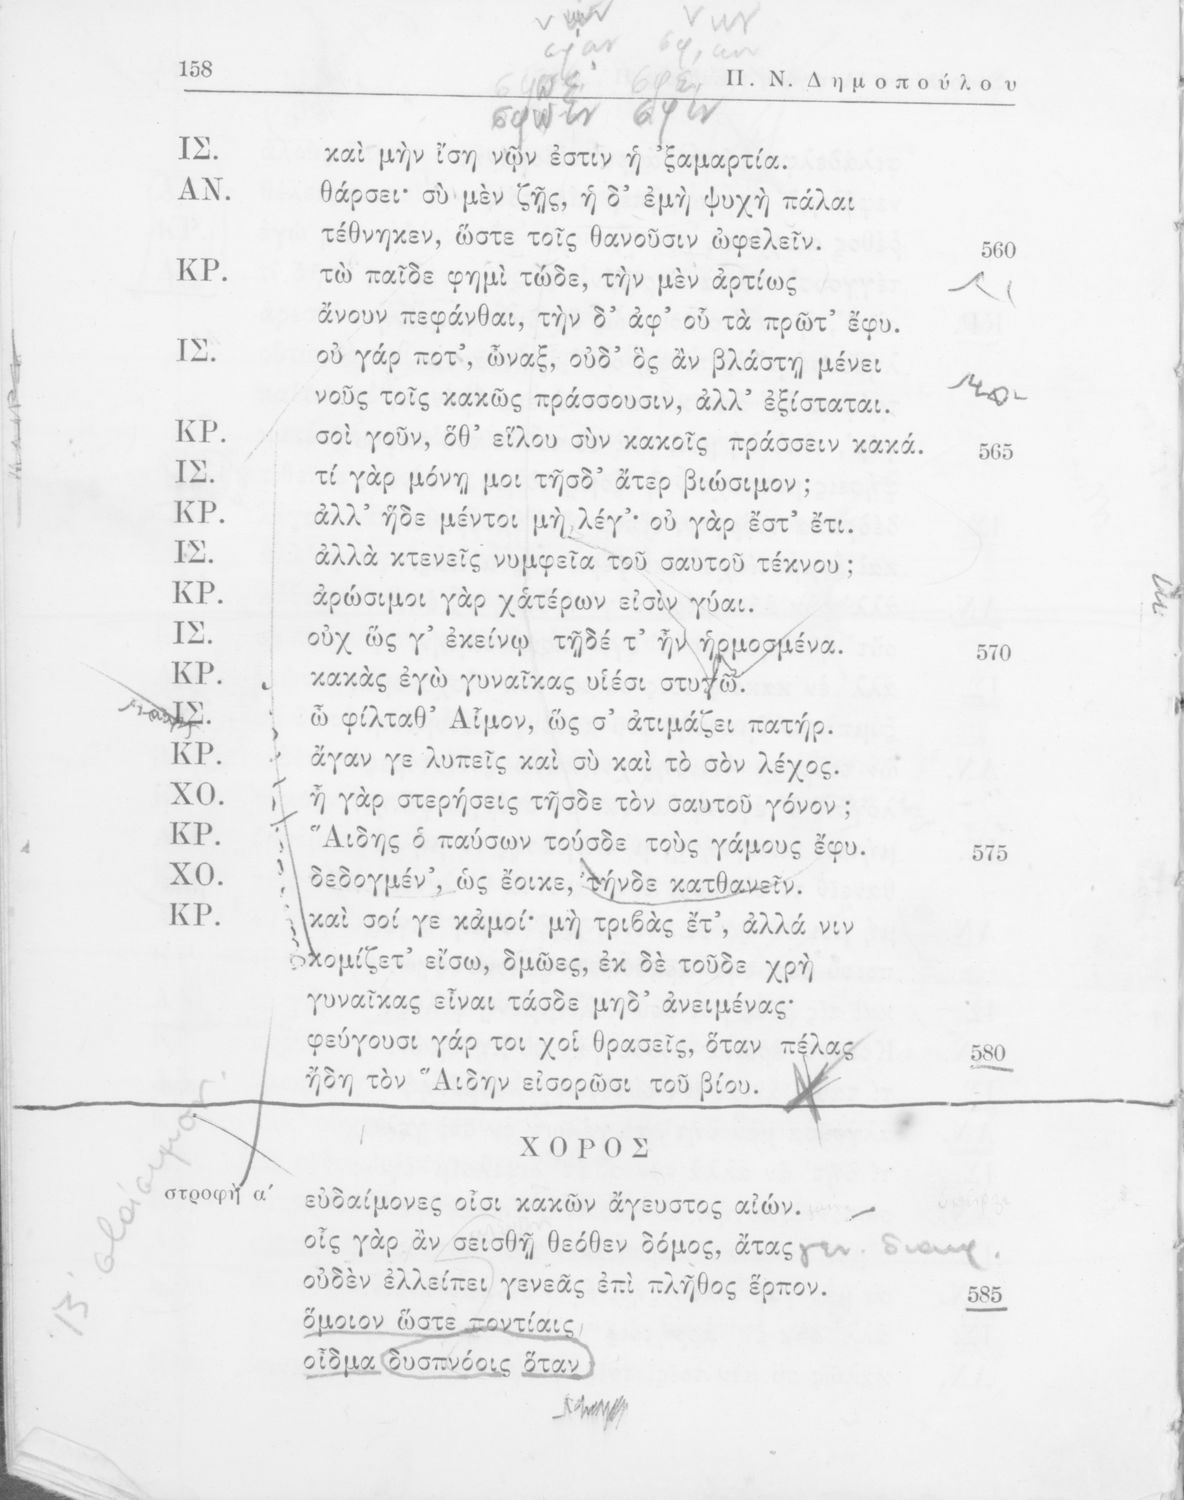 158
Π. Ν. Δημοπούλου
ΙΣ. καὶ μὴν ἴση νῷν ἐστιν ἡ ᾿ξαμαρτία.
ΑΝ. θάρσει· σὺ μὲν ζῇς, ἡ δ᾿ ἐμὴ ψυχὴ πάλαι
τέθνηκεν, ὥστε τοῖς θανοῦσιν ὠφελεῖν. 560
ΚΡ. τὼ παῖδε φημὶ τώδε, τὴν μὲν ἀρτίως
ἄνουν πεφάνθαι, τὴν δ᾿ ἀφ᾿ οὗ τὰ πρῶτ᾿ ἔφυ.
ΙΣ. οὐ γάρ ποτ᾿, ὦναξ, οὐδ᾿ ὃς ἂν βλάστῃ μένει
νοῦς τοῖς κακῶς πράσσουσιν, ἀλλ᾿ ἐξίσταται.
ΚΡ. σοὶ γοῦν, ὅθ᾿ εἵλου σὺν κακοῖς πράσσειν κακά. 565
ΙΣ. τί γὰρ μόνῃ μοι τῆσδ᾿ ἄτερ βιώσιμον ;
ΚΡ. ἀλλ᾿ ἥδε μέντοι μὴ λέγ᾿· οὐ γὰρ ἔστ᾿ ἔτι.
ΙΣ. ἀλλὰ κτενεῖς νυμφεῖα τοῦ σαυτοῦ τέκνου ;
ΚΡ. ἀρώσιμοι γὰρ χἀτέρων εἰσὶν γύαι.
ΙΣ. οὐχ ὥς γ᾿ ἐκείνῳ τῇδέ τ᾿ ἦν ἡρμοσμένα. 570
ΚΡ. κακὰς ἐγὼ γυναῖκας υἱέσι στυγῶ.
ΙΣ. ὦ φίλταθ᾿ Αἷμον, ὥς σ᾿ ἀτιμάζει πατήρ.
ΚΡ. ἄγαν γε λυπεῖς καὶ σὺ καὶ τὸ σὸν λέχος.
ΧΟ. ἦ γὰρ στερήσεις τῆσδε τὸν σαυτοῦ γόνον ;
ΚΡ. Ἅιδης ὁ παύσων τούσδε τοὺς γάμους ἔφυ. 575
ΧΟ. δεδογμέν᾿, ὡς ἔοικε, τήνδε κατθανεῖν.
ΚΡ. καὶ σοί γε κἀμοί· μὴ τριβὰς ἔτ᾿, ἀλλά νιν
κομίζετ᾿ εἴσω, δμῶες, ἐκ δὲ τοῦδε χρὴ
γυναῖκας εἶναι τάσδε μηδ᾿ ἀνειμένας·
φεύγουσι γάρ τοι χοἱ θρασεῖς, ὅταν πέλας 580
ἤδη τὸν Ἅιδην εἰσορῶσι τοῦ βίου.
ΧΟΡΟΣ
στροφὴ α´ εὐδαίμονες οἷσι κακῶν ἄγευστος αἰών.
οἷς γὰρ ἂν σεισθῇ θεόθεν δόμος, ἄτας
οὐδὲν ἐλλείπει γενεᾶς ἐπὶ πλῆθος ἕρπον. 585
ὅμοιον ὥστε ποντίαις
οἶδμα δυσπνόοις ὅταν